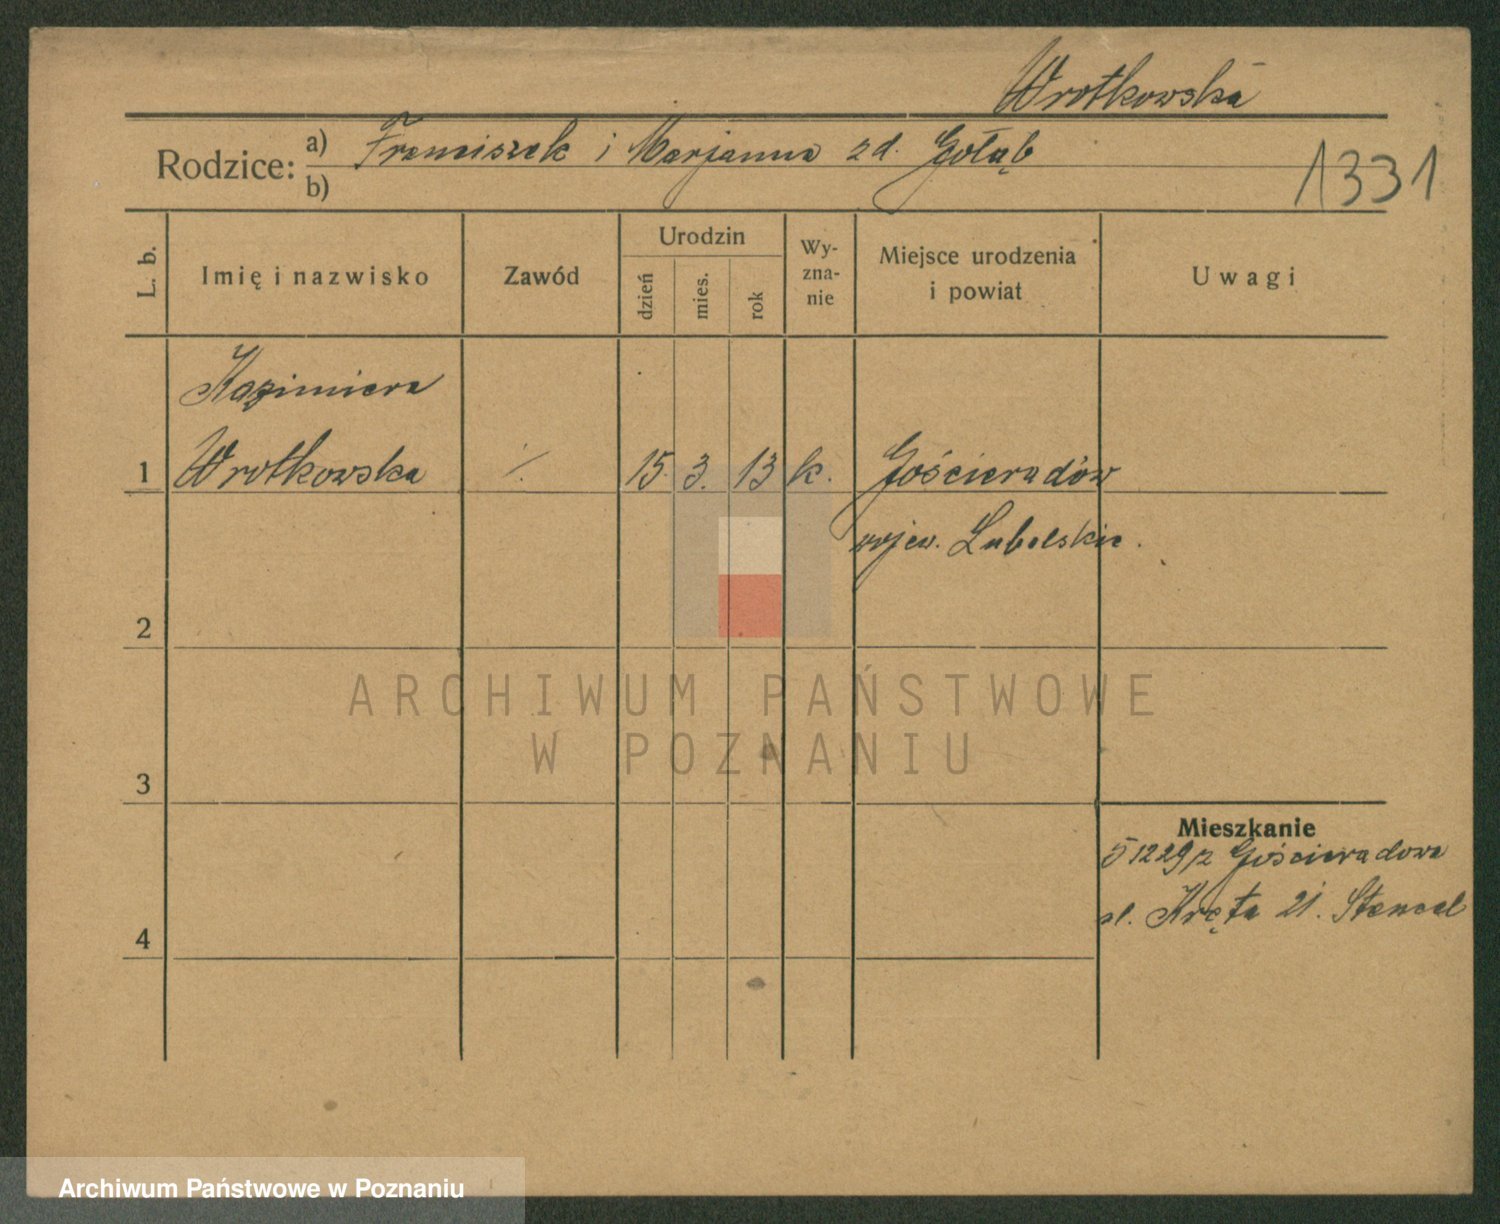 Wrotkowska
Rodzice: a) Franciszek i Marjanna zd. Gołąb
b)
1331
L. b.
Imię i nazwisko
Zawód
Urodzin
dzień
mies.
rok
Wy-
zna-
nie
Miejsce urodzenia
i powiat
Uwagi
Kazimiera
1 Wrotkowska ⁒ 15. 3. 13 k. Gościeradów
wojew. Lubelskie.
2
ARCHIWUM PAŃSTWOWE
W POZNANIU
3
Mieszkanie
5 12 29 z Gościeradowa
ul. Kręta 21. Stencel
4
Archiwum Państwowe w Poznaniu